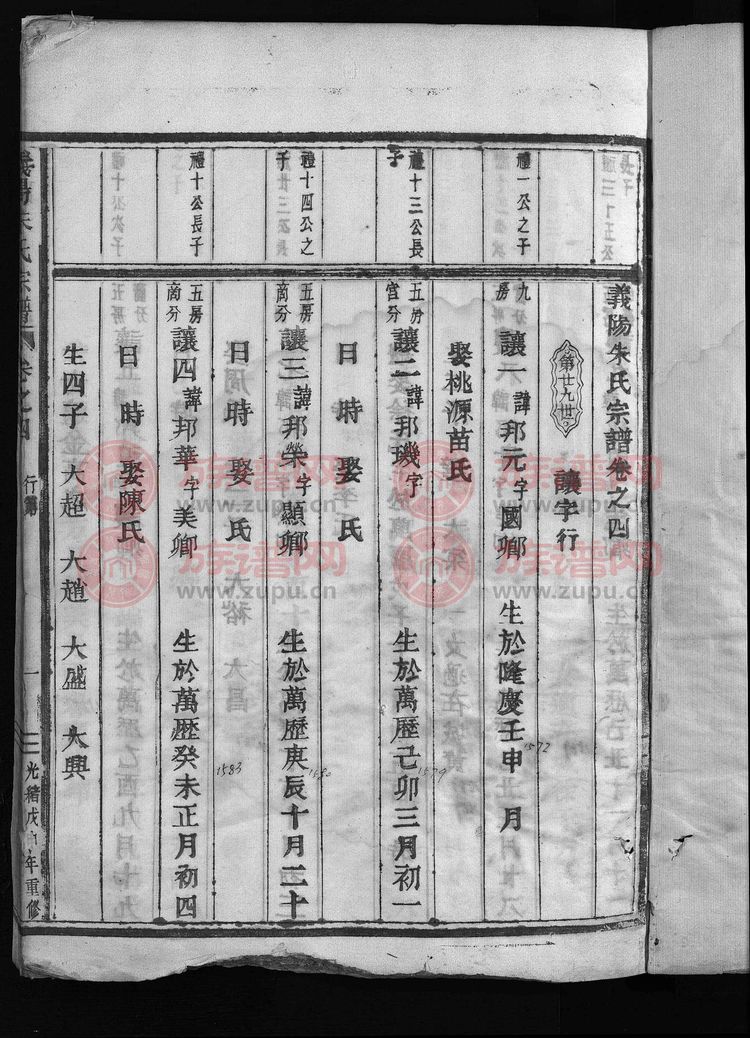 義陽朱氏宗譜卷之四
第廿九世
讓字行
禮一公之子
九房
讓一諱邦元字國卿 生於隆慶壬申 月
1572
娶桃源苗氏
禮十三公長子
五房宫分
讓二諱邦璣字 生於萬歷己卯三月初一
1579
日 時 娶 氏
禮十四公之子
五房商分
讓三諱邦榮字顯卿 生於萬歷庚辰十月二十
1580
日 時 娶 氏
禮十公長子
五房商分
讓四諱邦華字美卿 生於萬歷癸未正月初四
1583
日 時 娶陳氏
生四子 大超 大趙 大盛 大興
義陽朱氏宗譜 卷之四 行第 一 光緒戊申年重修
族谱网
www.zupu.cn
族谱网
www.zupu.cn
族谱网
www.zupu.cn